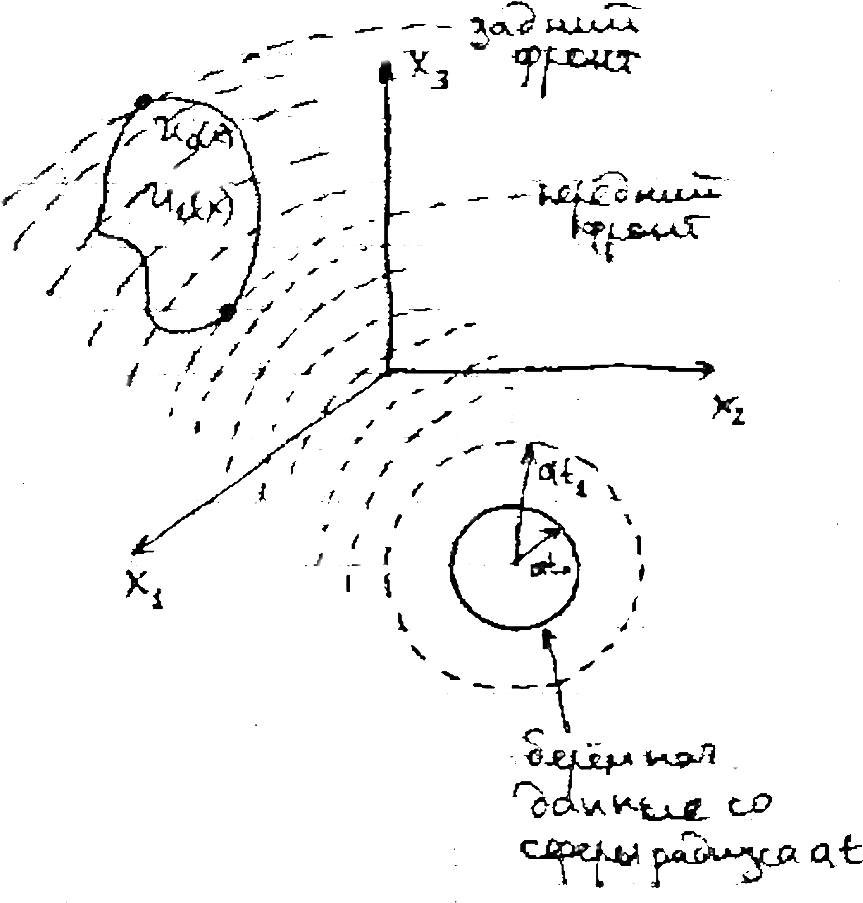 задний
фронт
X₃
u₀(x)
u₁(x)
передний
фронт
X₂
at₁
at₀
X₁
берём нач
данные со
сферы радиуса at